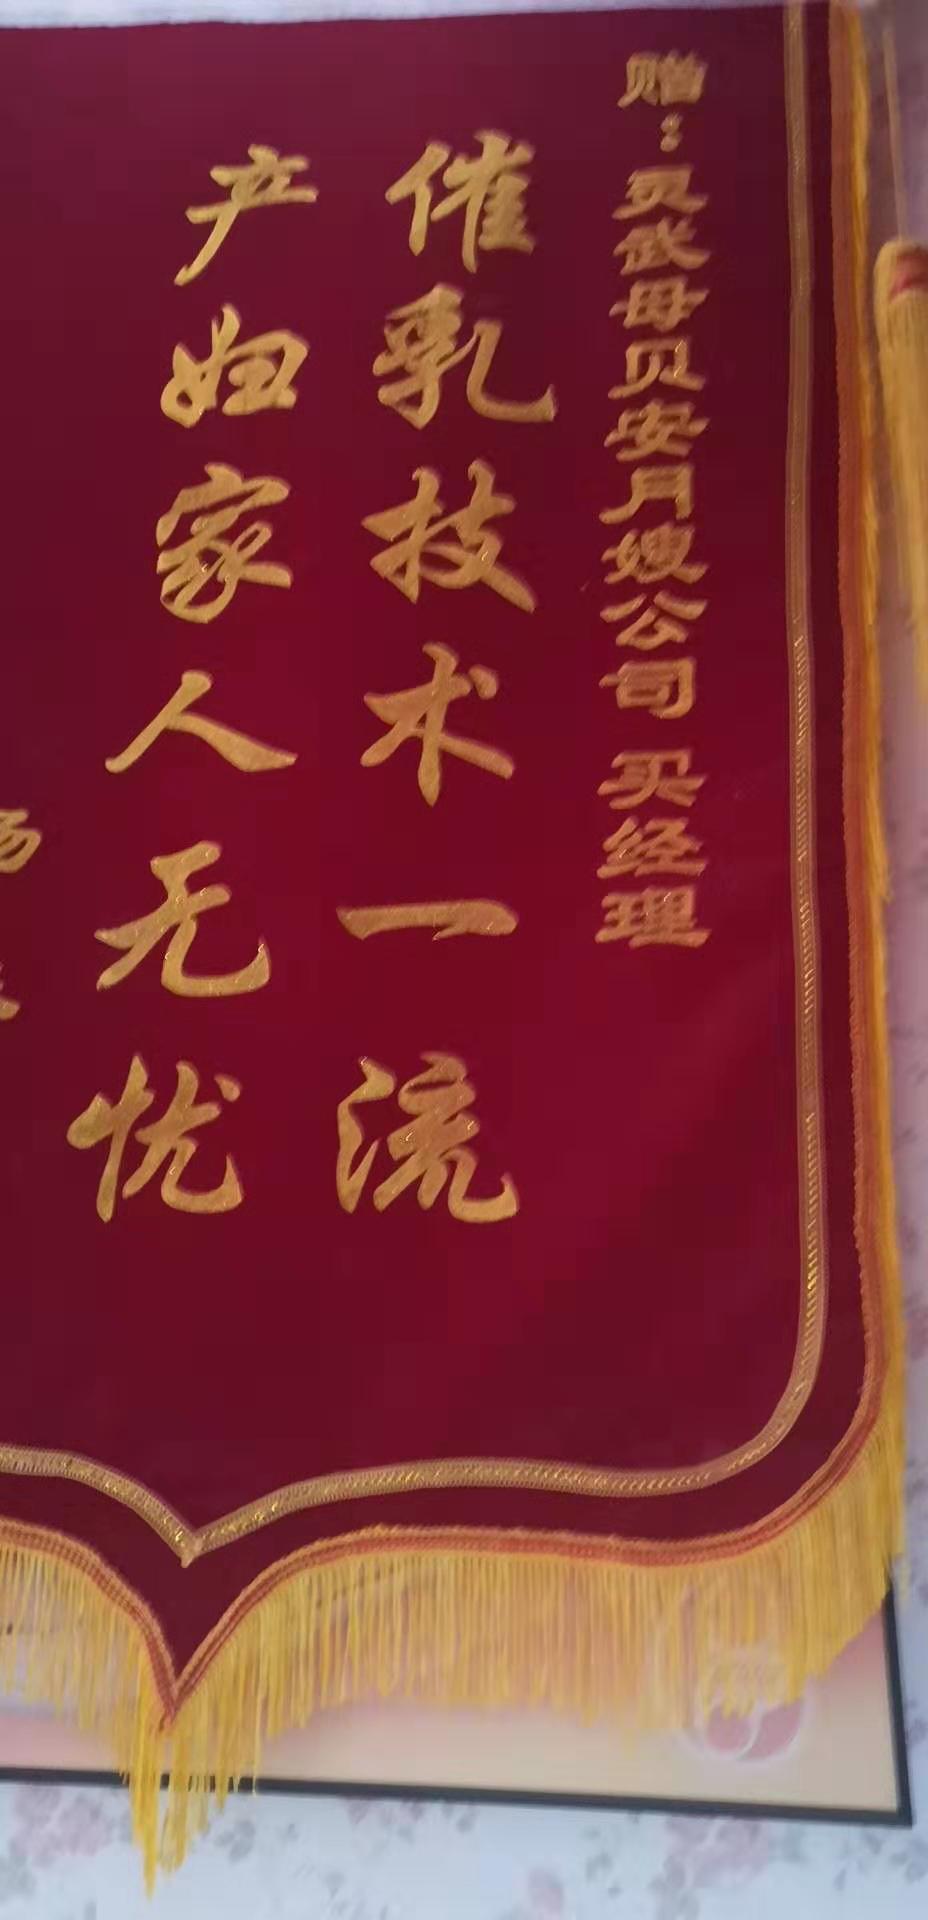 赠：灵武母贝安月嫂公司 买经理
催乳技术一流
产妇家人无忧